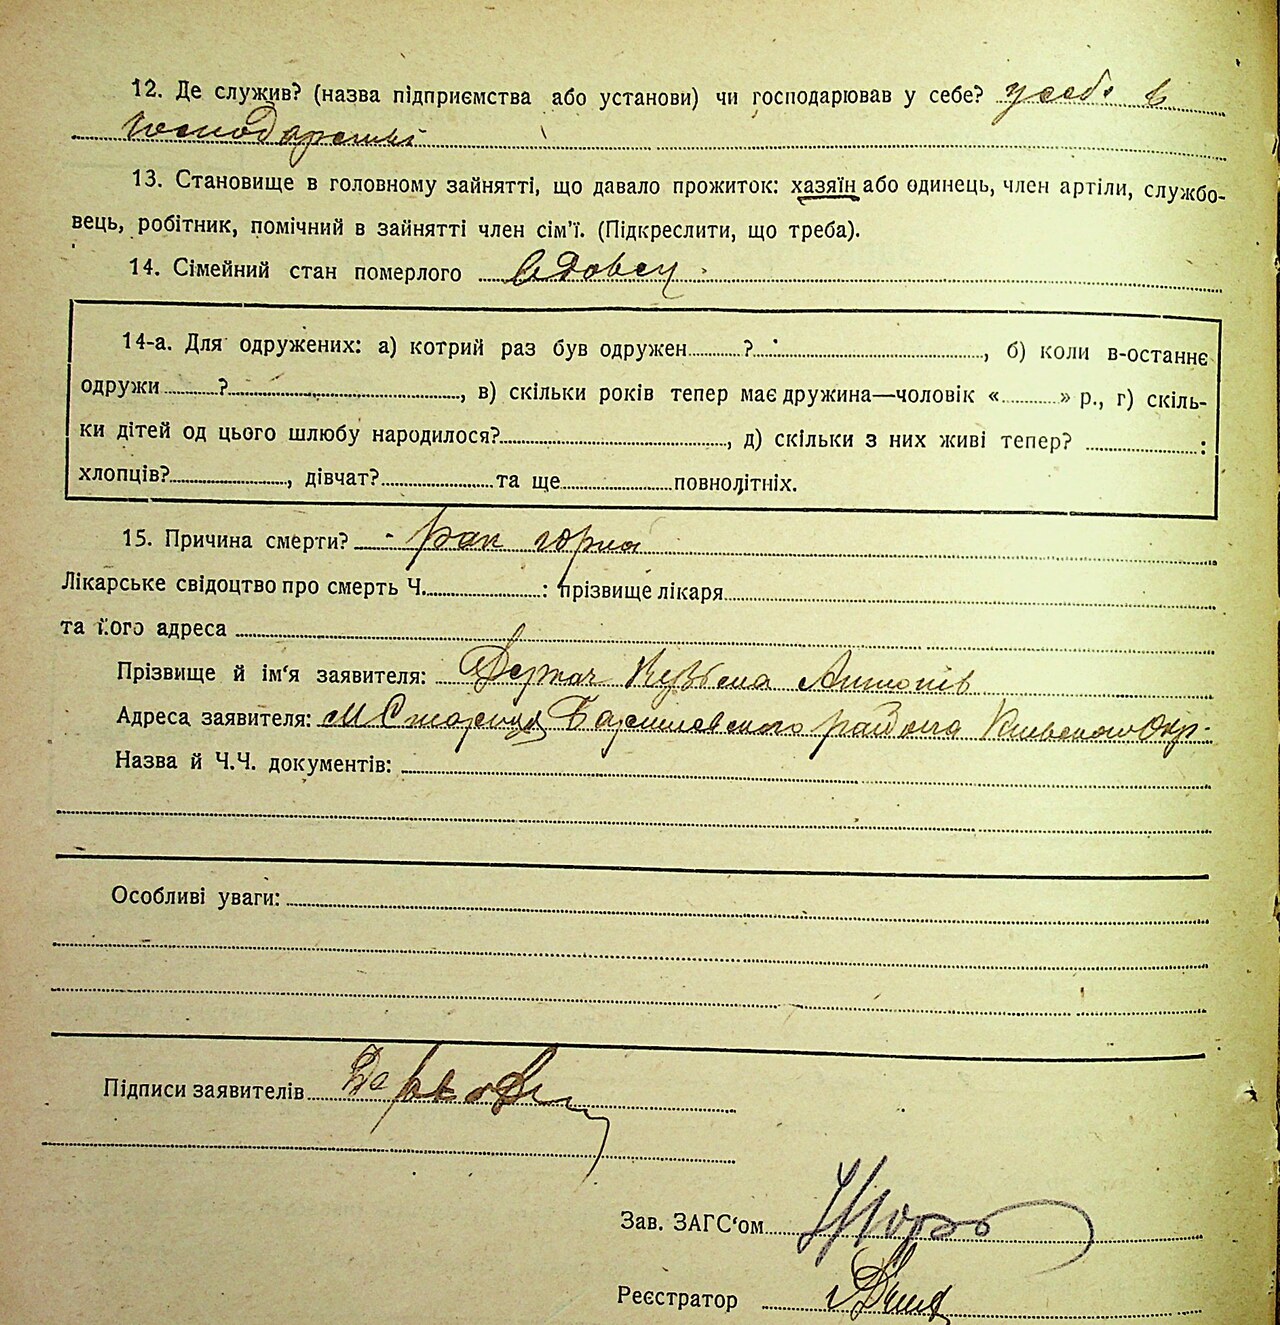 12. Де служив? (назва підприємства або установи) чи господарював у себе? у себе в
господарстві
13. Становище в головному зайнятті, що давало прожиток: хазяїн або одинець, член артіли, службо-
вець, робітник, помічний в зайнятті член сім'ї. (Підкреслити, що треба).
14. Сімейний стан померлого вдовец
14-а. Для одружених: а) котрий раз був одружен ? , б) коли в-останнє
одружи ? , в) скільки років тепер має дружина—чоловік « » р., г) скіль-
ки дітей од цього шлюбу народилося? , д) скільки з них живі тепер? :
хлопців? , дівчат? та ще повнолітніх.
15. Причина смерти? рак горла
Лікарське свідоцтво про смерть Ч. : прізвище лікаря
та його адреса
Прізвище й ім‘я заявителя: Деркач Кузьма Антонів
Адреса заявителя: М Старица Баришевского района Киевского Окр.
Назва й Ч.Ч. документів:
Особливі уваги:
Підписи заявителів
Зав. ЗАГС‘ом
Реєстратор